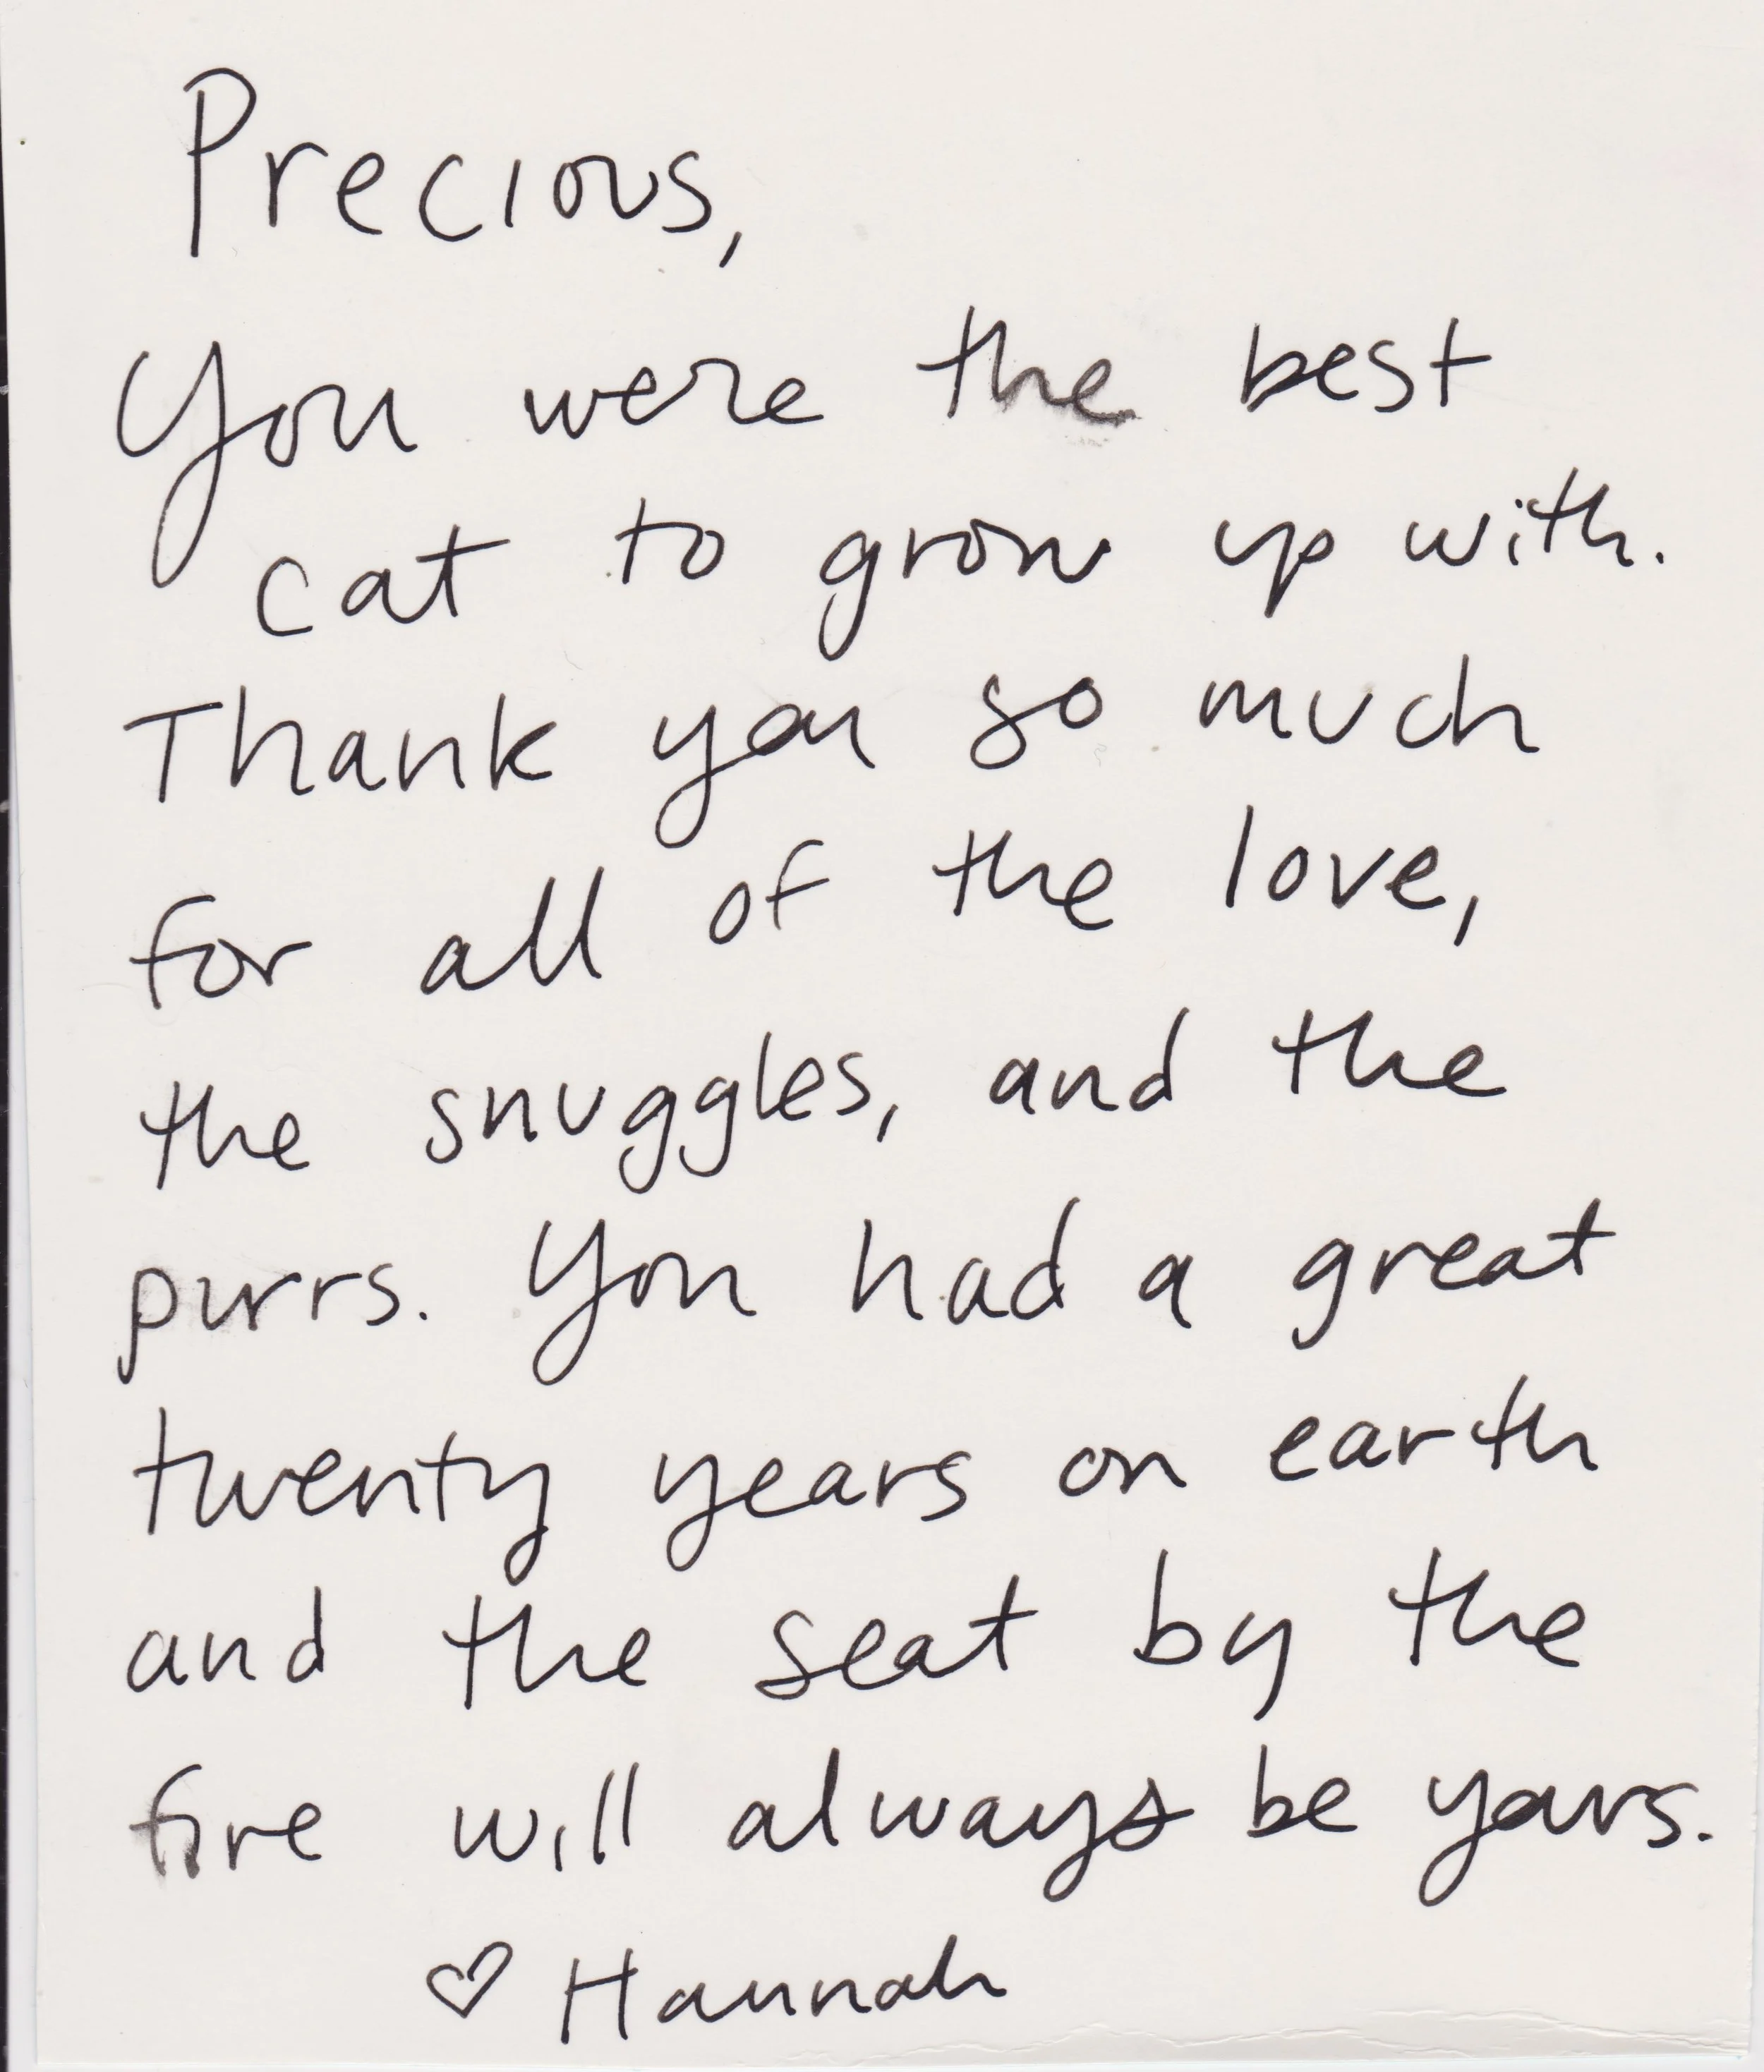 Precious,
You were the best
cat to grow up with.
Thank you so much
for all of the love,
the snuggles, and the
purrs. You had a great
twenty years on earth
and the seat by the
fire will always be yours.
♡ Hannah